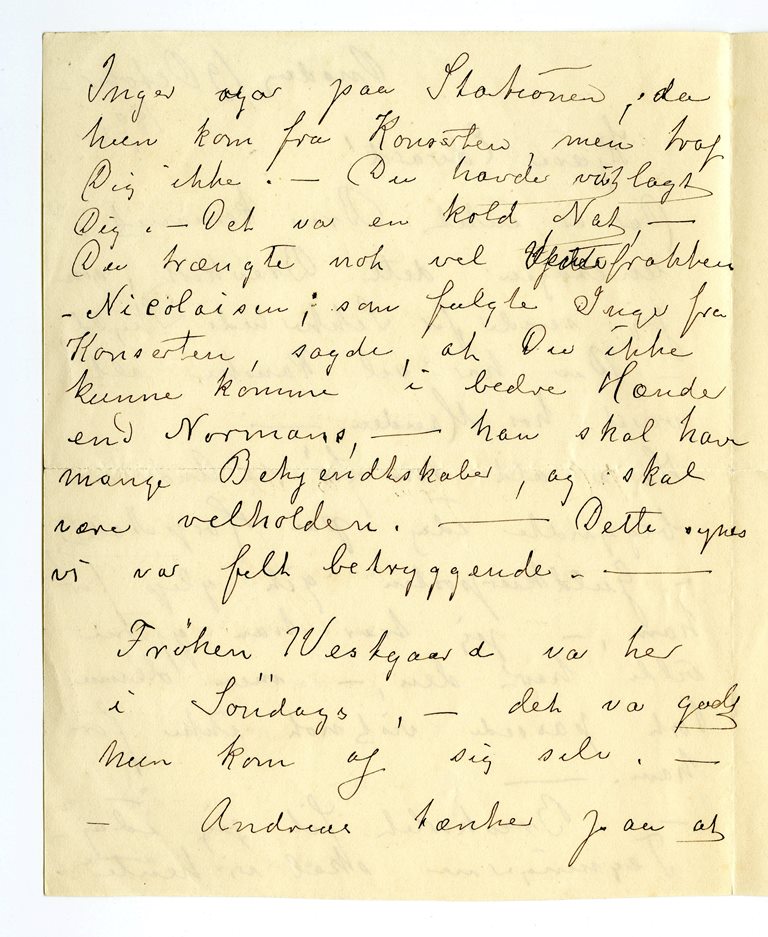 Inger var paa Stationen, da
hun kom fra Konserten, men traf
Dig ikke. — Du havde vist lagt
Dig. — Det va en kold Nat, —
Du trængte nok vel frakken
- Nicolaisen, som fulgte Inge fra
Konserten, sagde, at Du ikke
kunne komme i bedre Hænde
end Normans, — han skal have
mange Bekjendtskaber, og skal
være velholden. — Dette synes
vi var felt betryggende. —
Fröken Westgaard va her
i Söndags, — det va godt
hun kom af sig selv. —
— Andreas tænker paa at